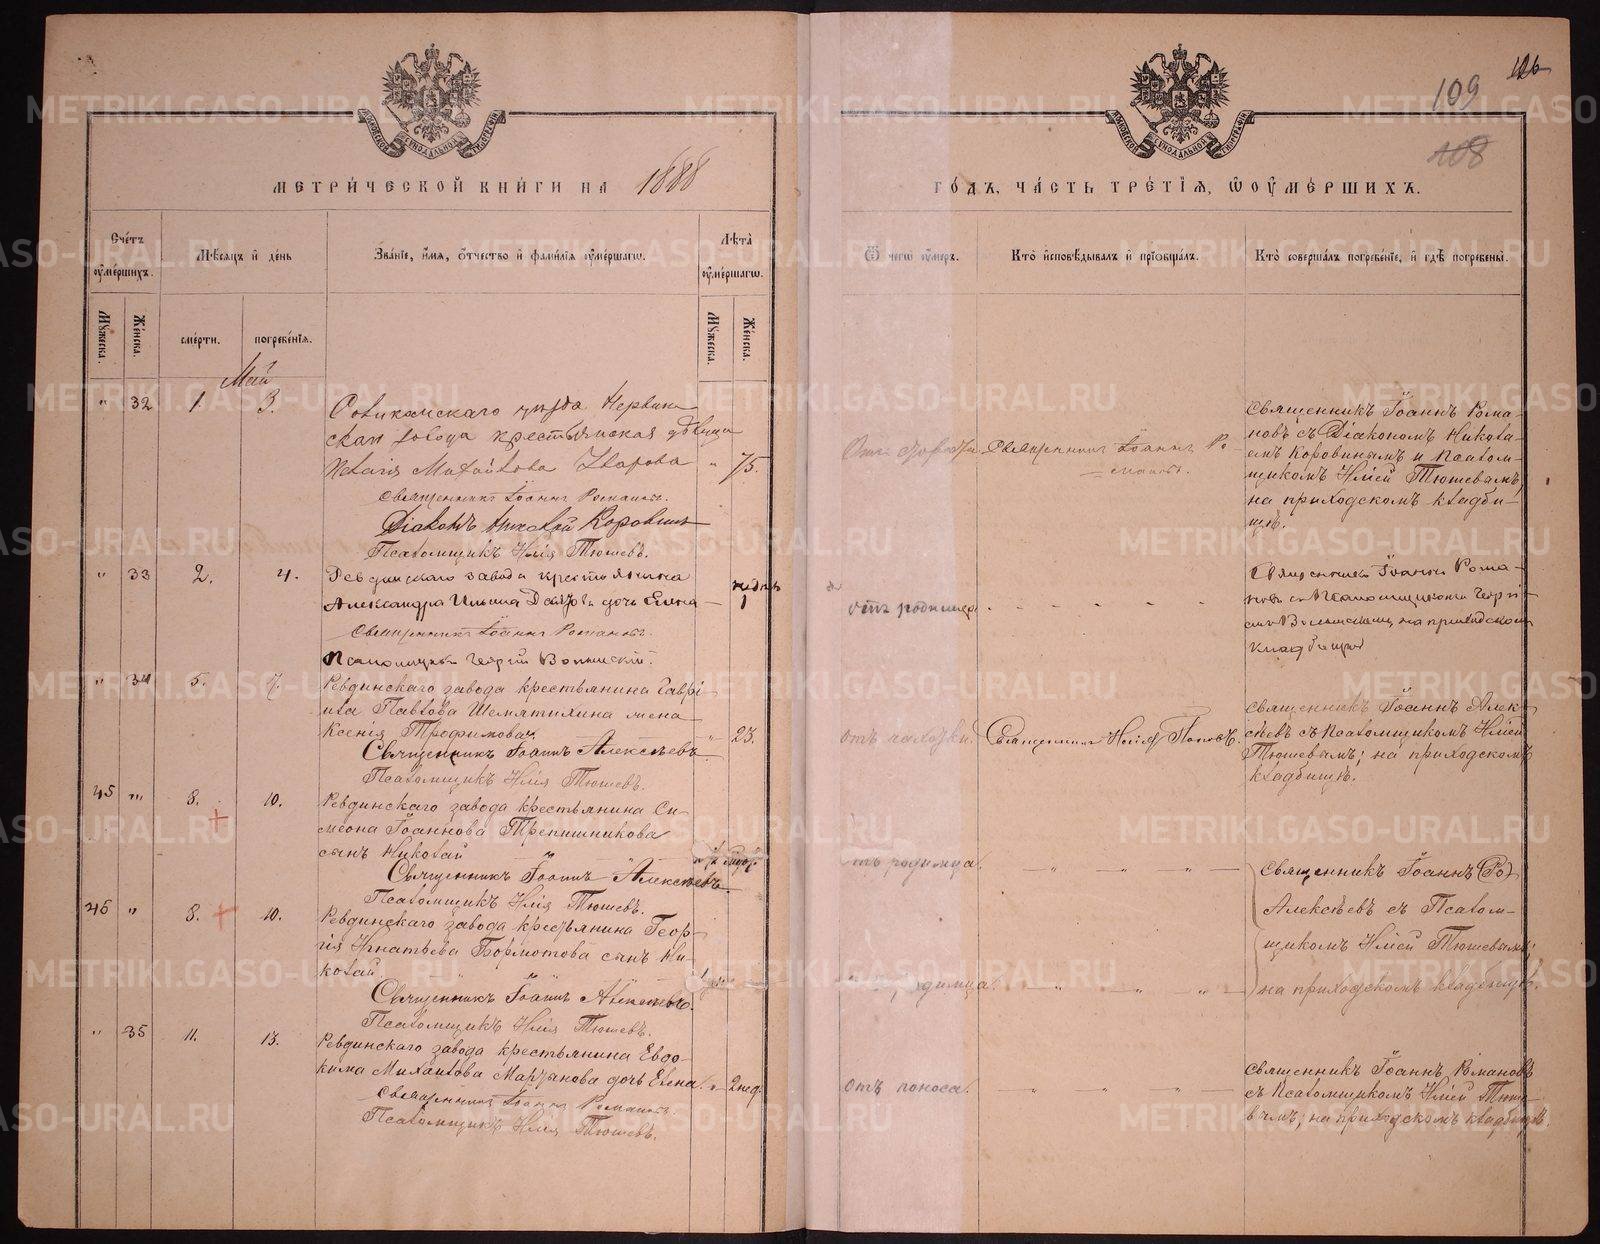 126
109
108
МОСКОВСКОЙ СѴНОДАЛЬНОЙ ТИПОГРАФІИ
МОСКОВСКОЙ СѴНОДАЛЬНОЙ ТИПОГРАФІИ
METRIKI.GASO-URAL.RU
МЕТРИЧЕСКОЙ КНИГИ НА 1888 ГОДЪ, ЧАСТЬ ТРЕТІЯ, Ѿ ОУМЕРШИХЪ.
Счетъ оумершихъ.
Мѣсяцъ и день
Званіе, имя, отчество и фамилія оумершагѡ.
Лѣта оумершагѡ.
Ѿ чегѡ оумеръ.
Кто исповѣдывалъ и пріобщалъ.
Кто совершалъ погребеніе, и гдѣ погребены.
Мужеска.
Женска.
смерти.
погребенія.
Мужеска.
Женска.
Май
" 32 1. 3.
Соликамскаго уѣзда
завода крестьянская дѣвица
Михайлова Уварова " 75.
Священникъ Іоаннъ Романовъ.
Діаконъ Николай Коровинъ
Псаломщикъ Илія Тюшевъ.
Священникъ Іоаннъ Ро-
мановъ.
Священникъ Іоаннъ Рома-
новъ съ Діакономъ Никола-
емъ Коровинымъ и Псалом-
щикомъ Иліей Тюшевымъ,
на приходскомъ кладби-
щѣ.
" 33 2. 4.
Ревдинскаго завода крестьянина
Александра Ильина дочь Елена
Священникъ Іоаннъ Романовъ.
Псаломщикъ Георгій
отъ родимца
Священникъ Іоаннъ Рома-
новъ съ Псаломщикомъ Георгі-
емъ на приходскомъ
кладбищѣ
" 34 5. 7.
Ревдинскаго завода крестьянина Гаврі-
ила Павлова Шемятихина жена
Ксенія Трофимова " 23.
Священникъ Іоаннъ Алексѣевъ.
Псаломщикъ Илія Тюшевъ.
отъ чахотки. Священникъ Илія Поповъ.
Священникъ Іоаннъ Алек-
сѣевъ съ Псаломщикомъ Иліей
Тюшевымъ; на приходскомъ
кладбищѣ.
45 " 8. 10.
Ревдинскаго завода крестьянина Си-
меона Іоаннова Трепишникова
сынъ Николай
Священникъ Іоаннъ Алексѣевъ
Псаломщикъ Илія Тюшевъ.
отъ родимца.
Священникъ Іоаннъ (Ро)
Алексѣевъ съ Псалом-
щикомъ Иліей Тюшевымъ;
на приходскомъ кладбищѣ.
46 " 8. 10.
Ревдинскаго завода крестьянина Геор-
гія Игнатьева Бормотова сынъ Ни-
колай.
Священникъ Іоаннъ Алексѣевъ.
Псаломщикъ Илія Тюшевъ.
родимца.
" 35 11. 13.
Ревдинскаго завода крестьянина Евдо-
кима Михаилова Марзанова дочь Елена. " 2 нед.
Священникъ Іоаннъ Романовъ.
Псаломщикъ Илія Тюшевъ.
отъ поноса.
Священникъ Іоаннъ Романовъ
съ Псаломщикомъ Иліей Тюше-
вымъ; на приходскомъ кладбищѣ.